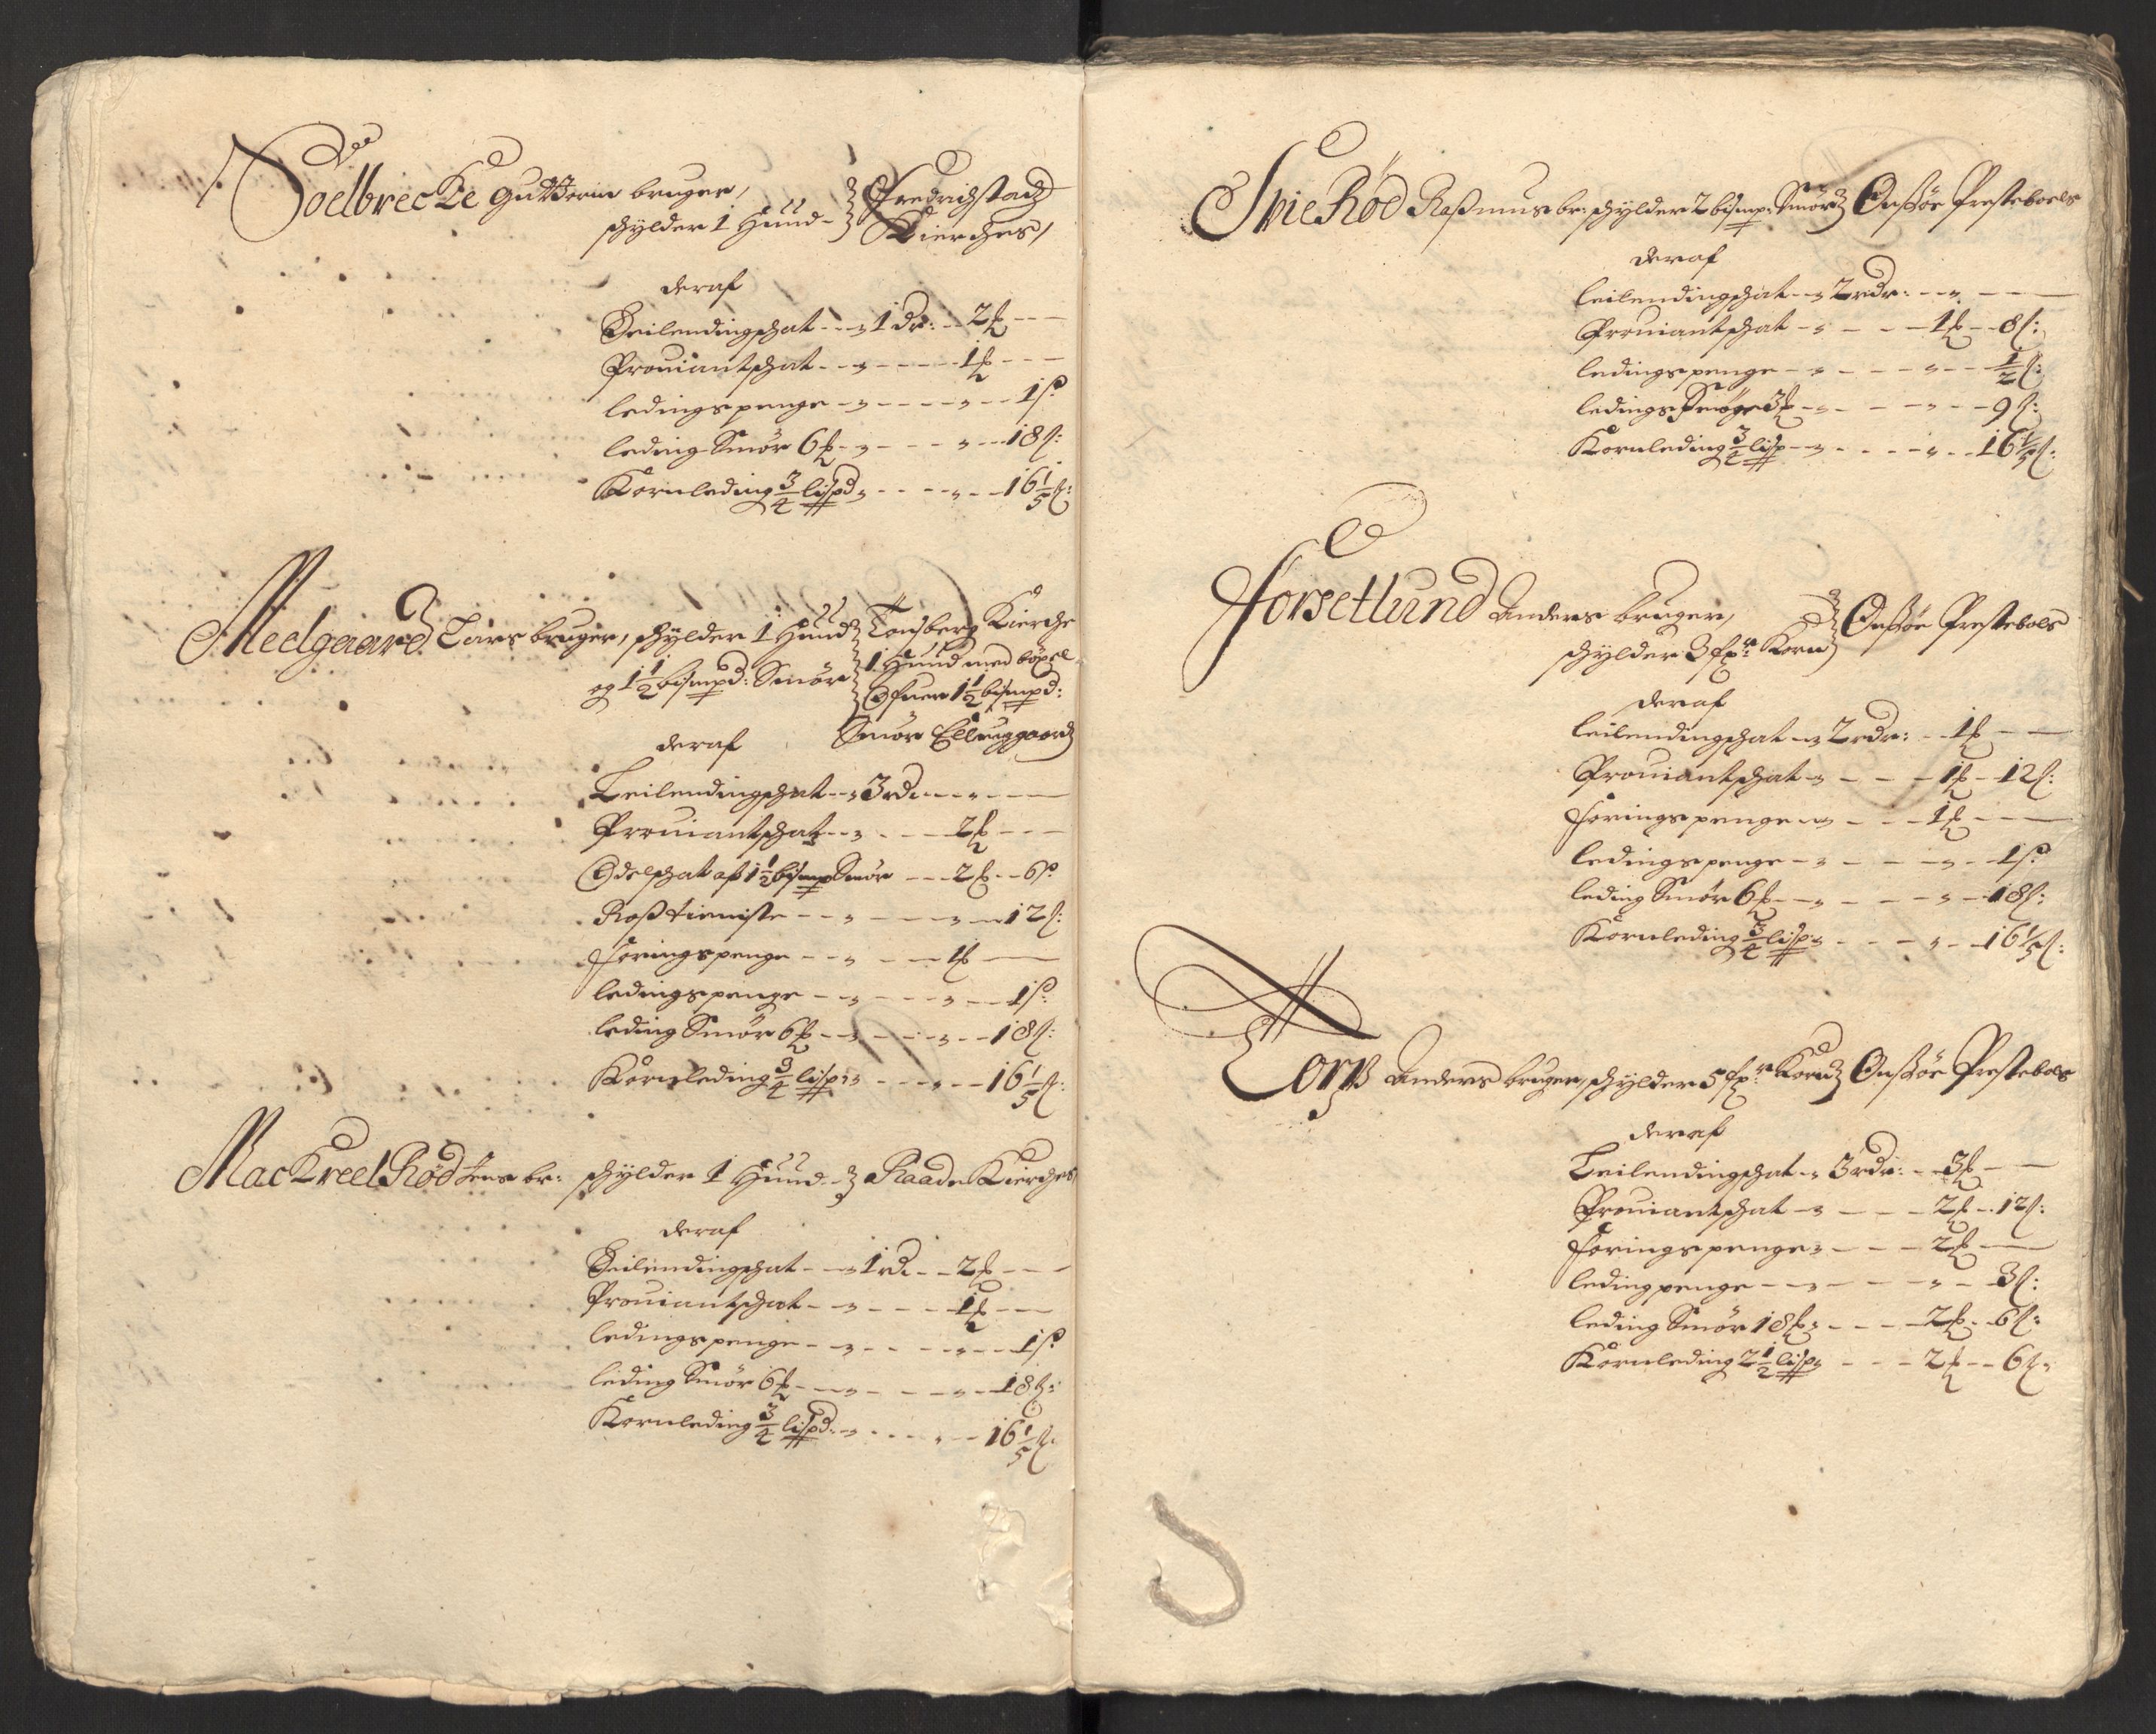 Soelbrecke Gutterm bruger,
schylder 1 Huud - Fredrichstadz
Kierches,
deraf
Leilendingschat - - 1 dr: - 2 ℔ - -
Prouiantschat - - - - - 1 ℔ - -
ledingspenge - - - - - 1 ß
leding Smør 6 ℔ - - - - 18 ß:
Kornleding 3/4 lispd - - - - 16 1/5 ß:
Meelgaard Lars bruger, schylder 1 Huud
og 1 1/2 bismpd: Smør
Tonsberg Kierche
1 Huud med bøxel
Ofuer 1 1/2 bismpd:
Smør Ellinggaard
deraf
Leilendingschat - - 3 rd - - -
Prouiantschat - - - - 2 ℔ - -
Odelschat af 1 1/2 bismp Smør - - 2 ℔ - 6 ß
Roßtieniste - - - - - 12 ß:
Foringspenge - - - - 1 ℔ -
ledingspenge - - - - - 1 ß:
leding Smør 6 ℔ - - - - 18 ß:
Kornleding 3/4 lisp - - - - 16 1/5 ß:
Mackreel Rød Jens br: schylder 1 Huud - Raade Kierches
deraf
Leilendingschat - - 1 rd - - 2 ℔ - -
Prouiantschat - - - - - 1 ℔ - -
ledingspenge - - - - - 1 ß
leding Smør 6 ℔ - - - - 18 ß:
Kornleding 3/4 lispd: - - - - 16 1/5 ß
Spie Rød Raßmus br: schylder 2 bismp: Smør Onsøe Presteboels
deraf
leilendingschat - - 2 rdr: - - -
Prouiantschat - - - - 1 ℔ - 8 ß:
ledingspenge - - - - - 1/2 ß:
ledings Smør 3 ℔ - - - - 9 ß:
Kornleding 3/4 lisp - - - - 16 1/5 ß:
Forsetlund Anders bruger,
schylder 3 fr Korn Onsøe Prestebols
deraf
leilendingschat - - 2 rdr: - 1 ℔ - -
Prouiantschat - - - - 1 ℔ - 12 ß:
Foringspenge - - - - 1 ℔ - -
ledingspenge - - - - - 1 ß
leding Smør 6 ℔ - - - - 18 ß:
Kornleding 3/4 lisp - - - - 16 1/5 ß:
Torp Anders bruger, schylder 5 fr Korn Onsøe Prestebols
deraf
Leilendingschat - 3 rdr: - 3 ℔ - -
Prouiantschat - - - - 2 ℔ - 12 ß:
Foringspenge - - - - 2 ℔ -
ledingpenge - - - - - 3 ß:
leding Smør 18 ℔ - - - 2 ℔ - 6 ß:
Kornleding 2 1/2 lisp - - - 2 ℔ - 6 ß